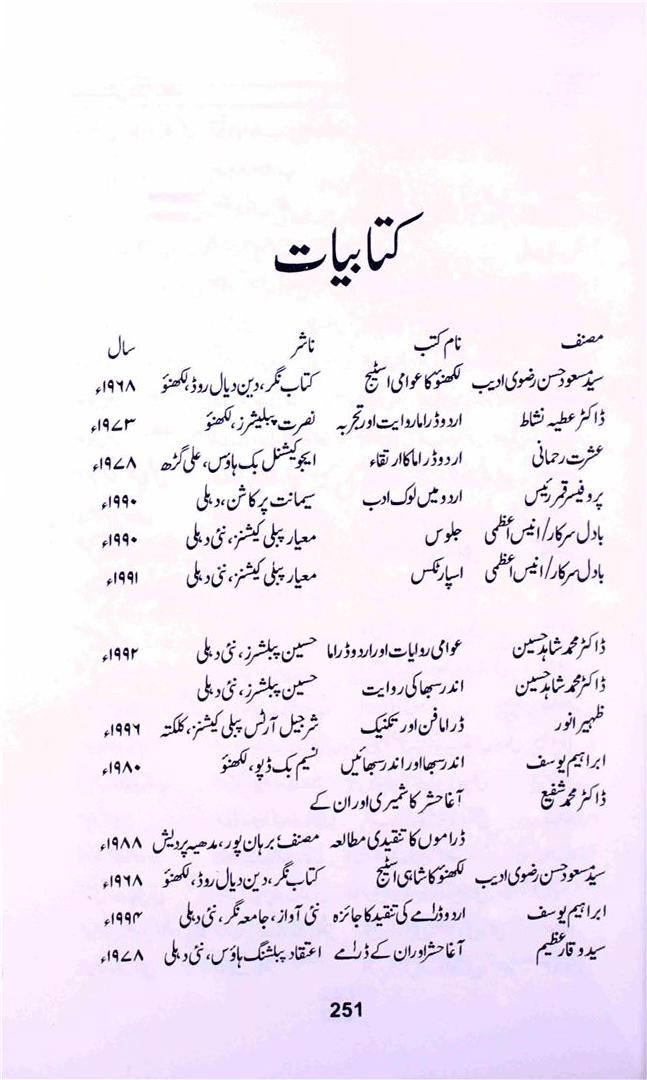 کتابیات
مصنف نام کتب ناشر سال
سید مسعود حسن رضوی ادیب لکھنؤ کا عوامی اسٹیج کتاب نگر، دین دیال روڈ، لکھنؤ ۱۹۶۸ء
ڈاکٹر عطیہ نشاط اردو ڈراما روایت اور تجربہ نصرت پبلیشرز، لکھنؤ ۱۹۷۳ء
عشرت رحمانی اردو ڈراما کا ارتقاء ایجوکیشنل بک ہاؤس، علی گڑھ ۱۹۷۸ء
پروفیسر قمر رئیس اردو میں لوک ادب سیمانت پرکاشن، دہلی ۱۹۹۰ء
بادل سرکار/انیس اعظمی جلوس معیار پبلی کیشنز، نئی دہلی ۱۹۹۰ء
بادل سرکار/انیس اعظمی اسپارٹکس معیار پبلی کیشنز، نئی دہلی ۱۹۹۱ء
ڈاکٹر محمد شاہد حسین عوامی روایات اور اردو ڈراما حسین پبلشرز، نئی دہلی ۱۹۹۲ء
ڈاکٹر محمد شاہد حسین اندر سبھا کی روایت حسین پبلشرز، نئی دہلی
ظہیر انور ڈراما فن اور تکنیک شرجیل آرٹس پبلی کیشنز، کلکتہ ۱۹۹۶ء
ابراہیم یوسف اندر سبھا اور اندر سبھائیں نسیم بک ڈپو، لکھنؤ ۱۹۸۰ء
ڈاکٹر محمد شفیع آغا حشر کاشمیری اور ان کے
ڈراموں کا تنقیدی مطالعہ مصنف برہان پور، مدھیہ پردیش ۱۹۸۸ء
سید مسعود حسن رضوی ادیب لکھنؤ کا شاہی اسٹیج کتاب نگر، دین دیال روڈ، لکھنؤ ۱۹۶۸ء
ابراہیم یوسف اردو ڈرامے کی تنقید کا جائزہ نئی آواز، جامعہ نگر، نئی دہلی ۱۹۹۴ء
سید وقار عظیم آغا حشر اور ان کے ڈرامے اعتقاد پبلشنگ ہاؤس، نئی دہلی ۱۹۷۸ء
251